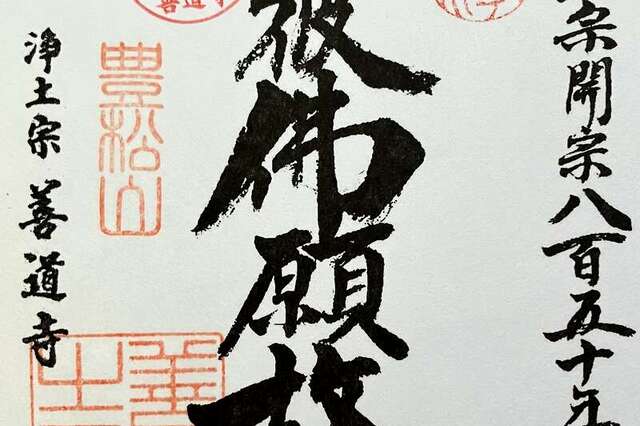 宗開宗八百五十年
彼佛願故
豊松山
浄土宗 善道寺
善道寺